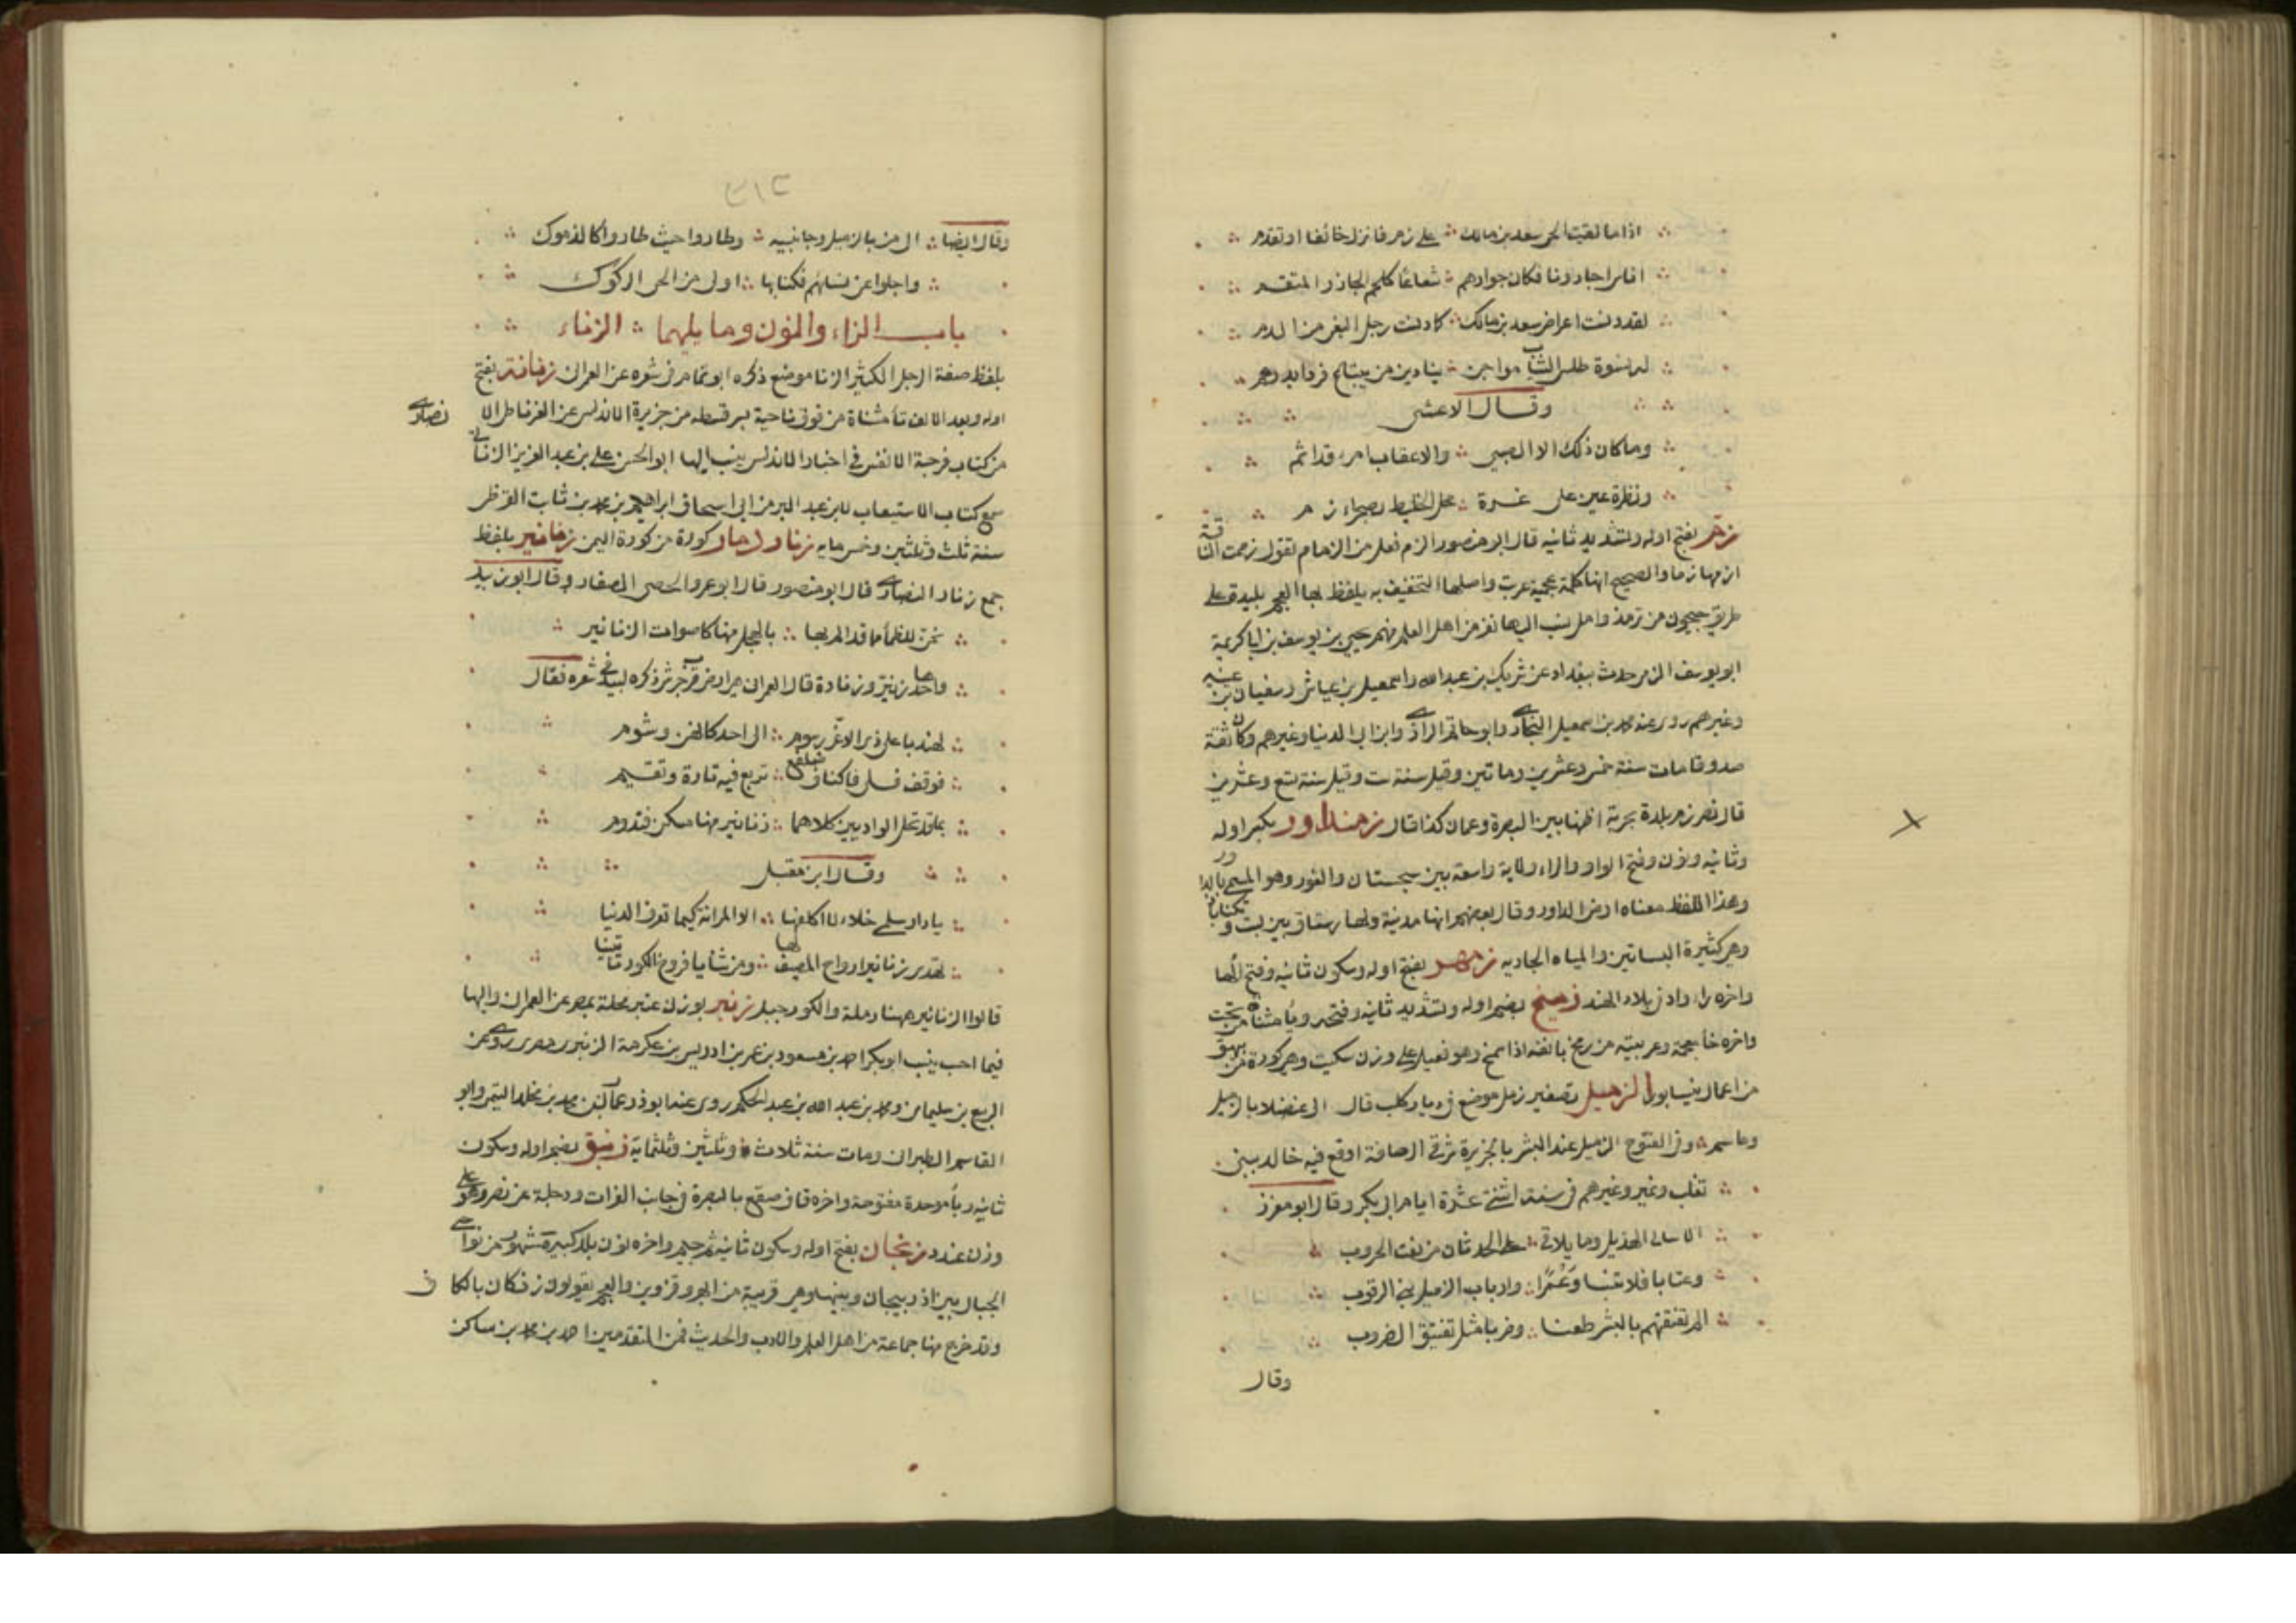 اذا ما لقيت الحي سعد بن مالك ∴ على زم فانزل خائفا او تقدم
اناس اجارونا فكان جوارهم ∴ شعاعا كلحم الجازر المتقسم
لقد دنست اعراض سعد بن مالك ∴ كما دنست رجل البغي من الدم
لهم نسوة طلس الثياب مواجن ∴ ينادين من يبتاع قردا بدرهم
وقال الاعشى
وما كان ذلك الا الصبى ∴ والا عقاب امرء قد اثم
ونظرة عين على غرة ∴ محل الخليط بصحراء زم
زم بفتح اوله وتشديد ثانيه قال ابو منصور الزم فعل من الزمام تقول زممت الناقة
ازمها زما والصحيح انها كلمة عجمية عربت واصلها التخفيف به يلفظ بها العجم بليدة على
طريق جيحون من ترمذ وامل نسب اليها نفر من اهل العلم منهم يحيى بن يوسف بن ابي كريمة
ابو يوسف الزمي حدث ببغداد عن شريك بن عبد الله واسمعيل بن عياش وسفيان بن عيينه
وغيرهم روى عنه محمد بن اسمعيل البخاري وابو حاتم الرازي وابن ابي الدنيا وغيرهم وكان ثقة
صدوقا مات سنة خمس وعشرين ومائتين وقيل سنة ست وقيل سنة تسع وعشرين
قال نصر زم بلدة بحرية اظنها بين البصرة وعمان كذا قال زمنداور بكسر اوله
وثانيه ونون وفتح الواو والراء ولاية واسعة بين سجستان والغور وهو المسمى بالداور
وهذا اللفظ معناه ارض الداور وقال بعضهم انها مدينة ولها رستاق بين بست وبكتاباذ
وهي كثيرة البساتين والمياه الجاريه زمهر بفتح اوله وسكون ثانيه وفتح الها
واخره را واد في بلاد الهند زميخ بضم اوله وتشديد ثانيه وفتحه وياء مثناة من تحت
واخره خا معجمة وعربيته من زمخ بانفه اذا شمخ وهو فعيل على وزن سكيت وهي كورة من بيهق
من اعمال نيسابور الزميل تصغير زمل موضع في ديار كلب قال
وفي الفتوح الزميل عند البشر بالجزيرة شرقي الرصافة اوقع فيه خالد ببني
تغلب ونمير وغيرهم في سنة اثنتي عشرة ايام ابي بكر وقال ابو مقرر
الا سالي الهذيل وما يلاقي ∴ على الحدثان من نعت الحروب
وعتابا فلا تنسا وعمرا ∴ وارباب الزميل بني الرقوب
الم نفتقهم بالبشر طعنا ∴ وضربا مثل تفتيق الضروب
وقال
٣١٢
وقال ايضا ∴ بالزميل وجانبيه ∴ وطاروا حيث طاروا كالدموك
واجلوا عن نسائهم فكنا بها ∴ اولى من الحي الركوك
باب الزاء والنون وما يليهما ∴ الزناء
بلفظ صفة الرجل الكثير الزنا موضع ذكره ابو تمام في شعره عن العمراني زناتة بفتح
اوله وبعد الالف تاء مثناة من فوق ناحية بسرقسطه من جزيرة الاندلس عن الغرناطي الانصاري
من كتاب فرحة الانفس في اخبار الاندلس ينسب اليها ابو الحسن علي بن عبد العزيز الزناتي
سمع كتاب الاستيعاب لابن عبد البر من ابي اسحاق ابراهيم بن محمد بن ثابت القرظي
سنة ثلث وثلثين وخمس مايه زناو ذمار كورة من كورة اليمن زنانير بلفظ
جمع زنار النصارى قال ابو منصور قال ابو عمرو الحصى الصغار وقال ابو زبيد
نحن للظمأ مما قد الم بها ∴ بالهجل منها كاصوات الزنانير
واحدها زنير وزنارة قال العمراني هي ارض قرب جرش ذكره لبيد في شعره فقال
لهند باعلى ذي الاغر رسوم ∴ الى احد كانهن وشوم
فوقف فسلي فاكناف ضلفع ∴ تربع فيه تارة وتقيم
بما قد تحل الواديين كلاهما ∴ زنانير منها مسكن فتدوم
وقال ابن مقبل
يا دار سلمى خلاء لا اكلفها ∴ الا المرانة كيما تعرف الدنيا
تهدي زنانير ارواح المصيف لها ∴ ومن ثنايا فروخ الكور تاتينا
قالوا الزنانير ههنا رملة والكور جبل زنبر بوزن عنبر محلة بمصر عن العمراني واليها
فيما احسب ينسب ابو بكر احمد بن مسعود بن عمر بن ادريس بن عكرمة الزنبري مصري روى عن
الربيع بن سليمان ومحمد بن عبد الله بن عبد الحكم روى عنه ابو ذر عمار بن محمد بن مخلد التيمي وابو
القاسم الطبراني ومات سنة ثلاث وثلثين وثلثماية زنبق بضم اوله وسكون
ثانيه وباء موحدة مفتوحة واخره قاف صقع بالبصرة في جانب الفرات ودجلة عن نصر وهو على
وزن عندد زنجان بفتح اوله وسكون ثانيه ثم جيم واخره نون بلد كبيرة مشهور من نواحي
الجبال بين اذربيجان وبينها وهي قريبة من ابهر وقزوين والعجم يقولون زنكان بالكاف
وقد خرج منها جماعة من اهل العلم والادب والحديث فمن المتقدمين احمد بن محمد بن ساكن